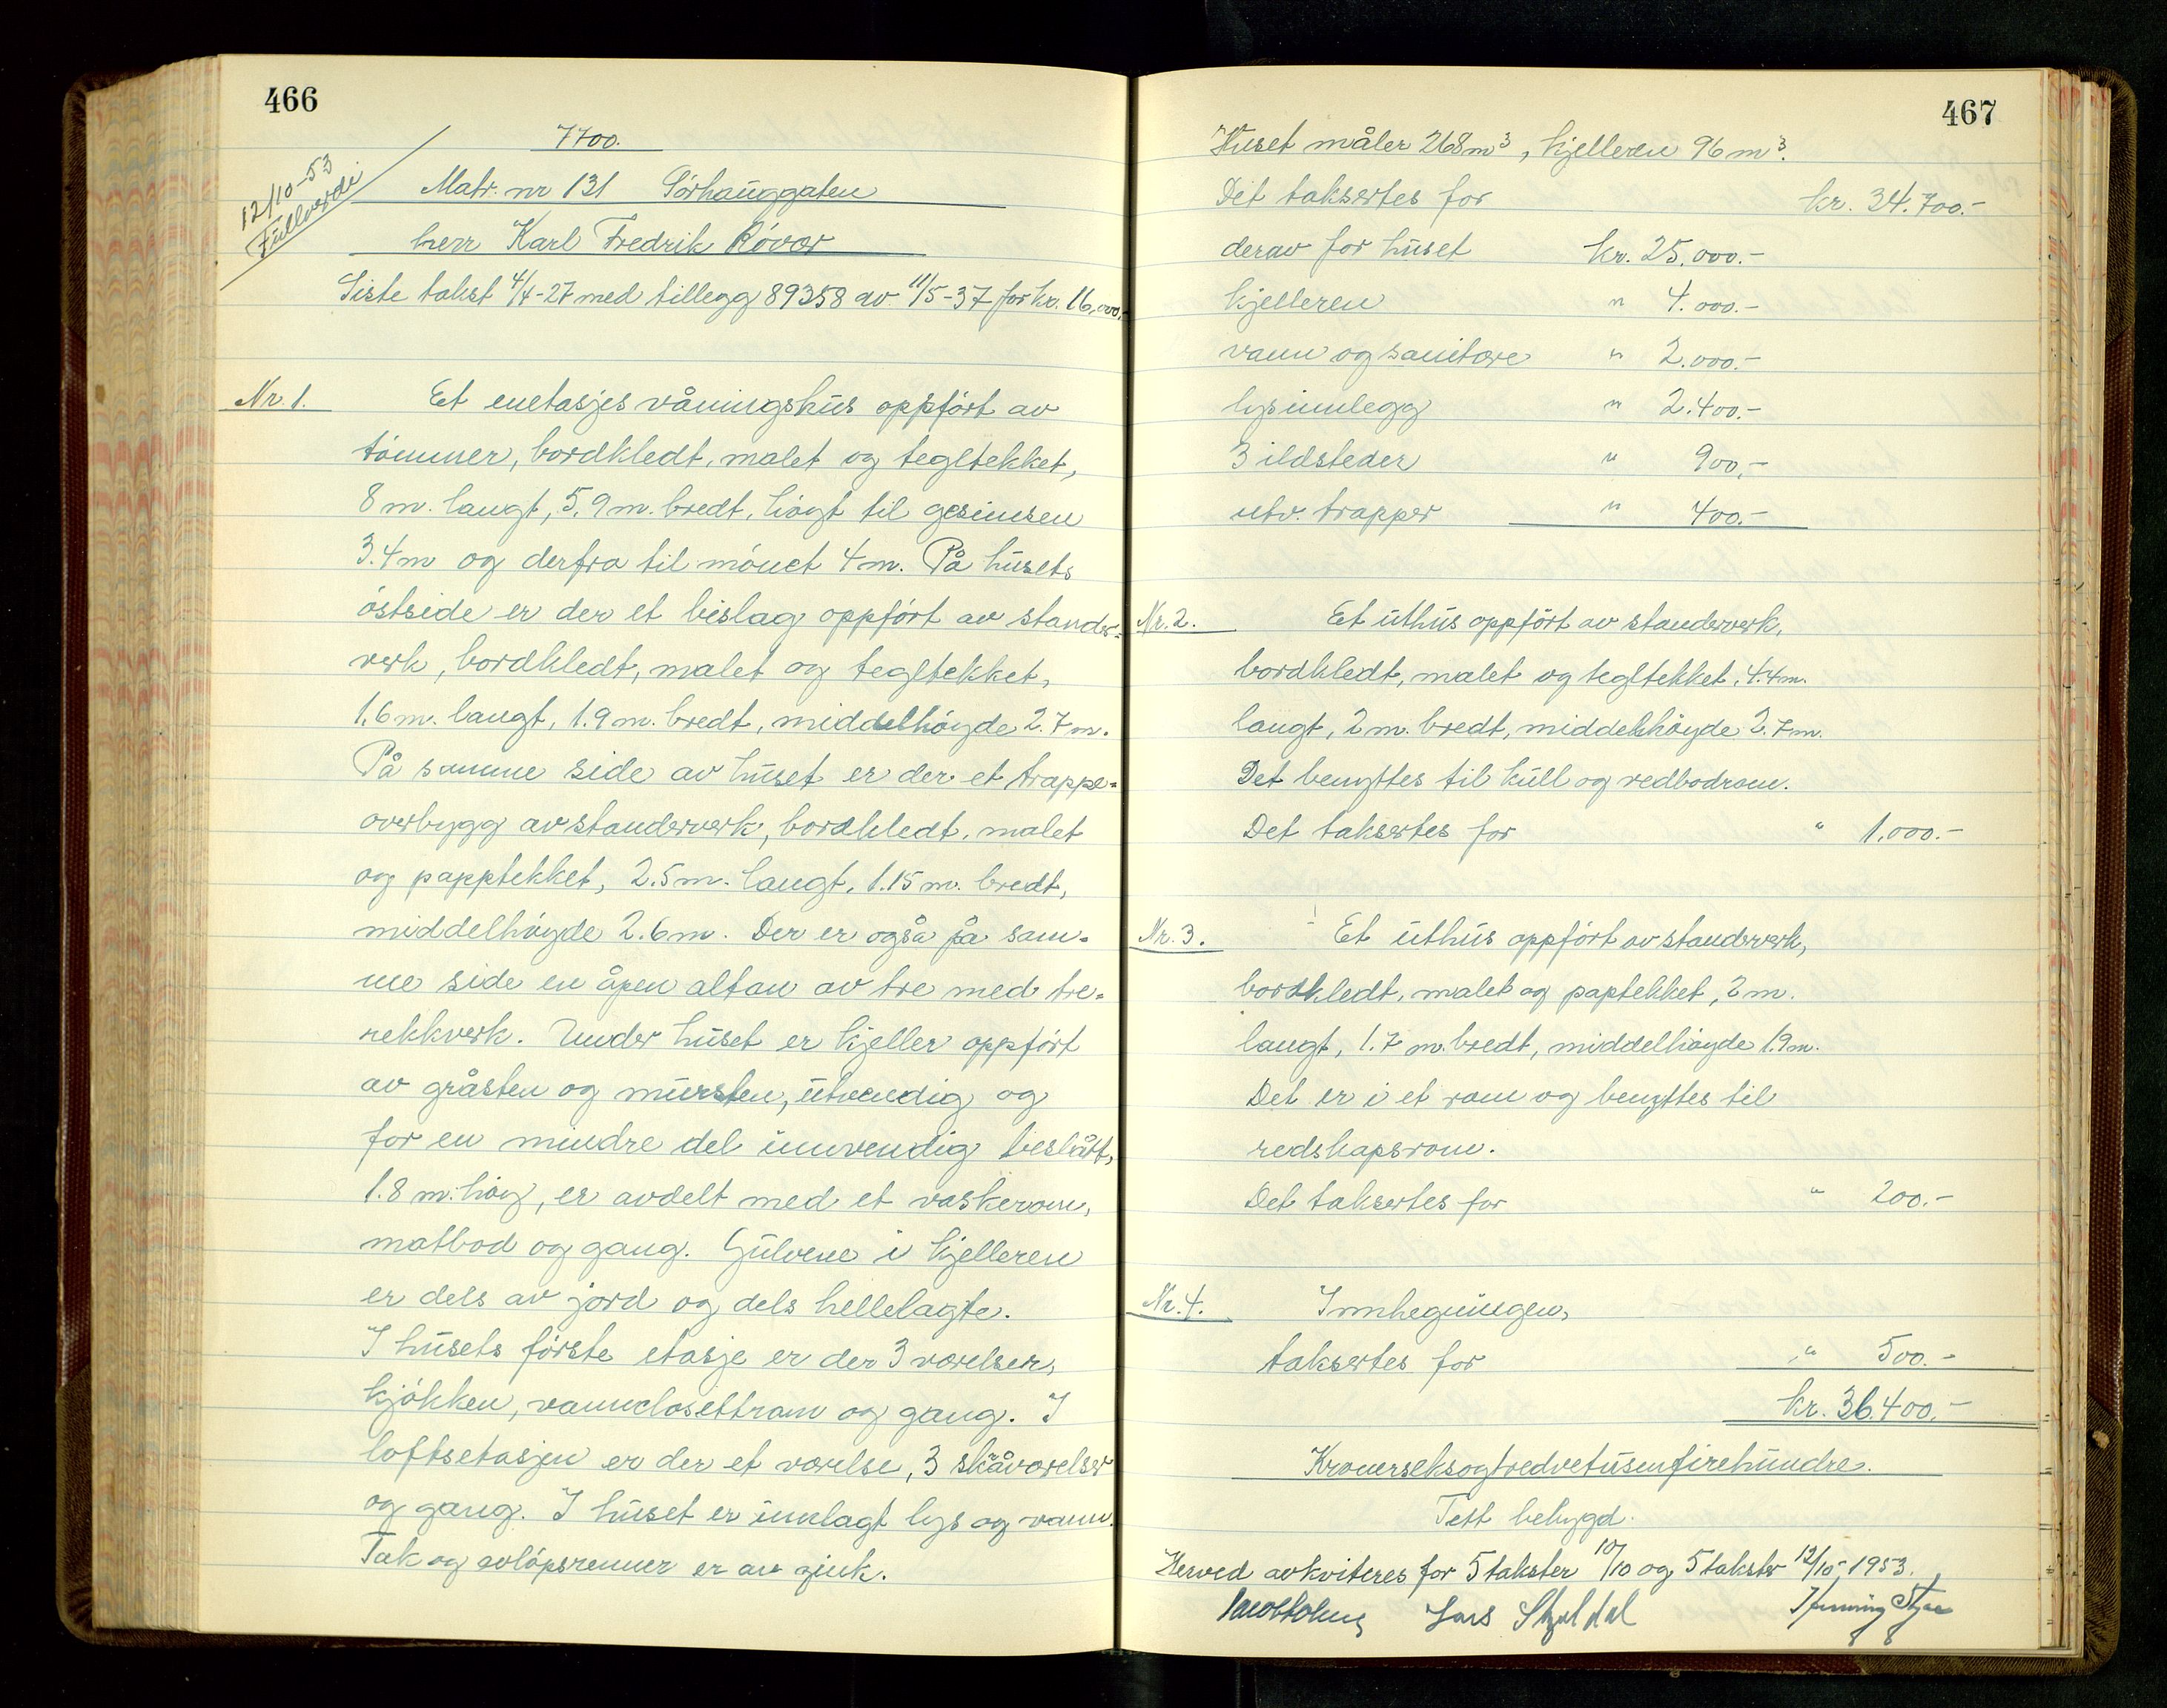 466
7700.
12/10-53
Fullverdi
Matr. nr 131 Sörhauggaten
herr Karl Fredrik Rövær
Siste takst 4/4-27 med tillegg 89358 av 11/5-37 for kr. 16,000.-
Nr. 1. Et enetasjes våningshus oppfört av
tömmer, bordkledt, malet og tegltekket,
8 m. langt, 5.9 m. bredt, högt til gesimsen
3.4 m og derfra til mönet 4 m. På husets
östside er der et bislag oppfört av stander=
verk, bordkledt, malet og tegltekket,
1.6 m. langt, 1.9 m. bredt, middelhöyde 2.7 m.
På samme side av huset er der et trappe=
overbygg av standerverk, bordkledt, malet
og papptekket, 2.5 m. langt, 1.15 m. bredt,
middelhöyde 2.6 m. Der er også på sam=
me side en åpen altan av tre med tre=
rekkverk. Under huset er kjeller oppfört
av gråsten og mursten, utvendig og
for en mindre del innvendig beslått,
1.8 m. höy, er avdelt med et vaskerom,
matbod og gang. Gulvene i kjelleren
er dels av jord og dels hellelagte.
I husets förste etasje er der 3 værelser,
kjökken, vannclosettrom og gang. I
loftsetasjen er der et værelse, 3 skråværelser
og gang. I huset er innlagt lys og vann.
Tak og avlöpsrenner er av zink.
467
Huset måler 268 m³, kjelleren 96 m³.
Det taksertes for kr. 34.700.-
derav for huset kr. 25.000.-
kjelleren " 4.000.-
vann og sanitære " 2.000.-
lysinnlegg " 2.400.-
3 ildsteder " 900.-
utv. trapper " 400.-
Nr. 2. Et uthus oppfört av standerverk,
bordkledt, malet og tegltekket, 4.4 m.
langt, 2 m. bredt, middelhöyde 2.7 m.
Det benyttes til kull og vedbodrom.
Det taksertes for " 1.000.-
Nr. 3. Et uthus oppfört av standerverk,
bordkledt, malet og paptekket, 2 m.
langt, 1.7 m. bredt, middelhöyde 1.9 m.
Det er i et rom og benyttes til
redskapsrom.
Det taksertes for " 200.-
Nr. 4. Innhegningen,
taksertes for " 500.-
kr. 36.400.-
Kronerseksogtredvetusenfirehundre.
Tett bebygd.
Herved avkviteres for 5 takster 10/10 og 5 takster 12/10-1953.
Lars Skjeldal